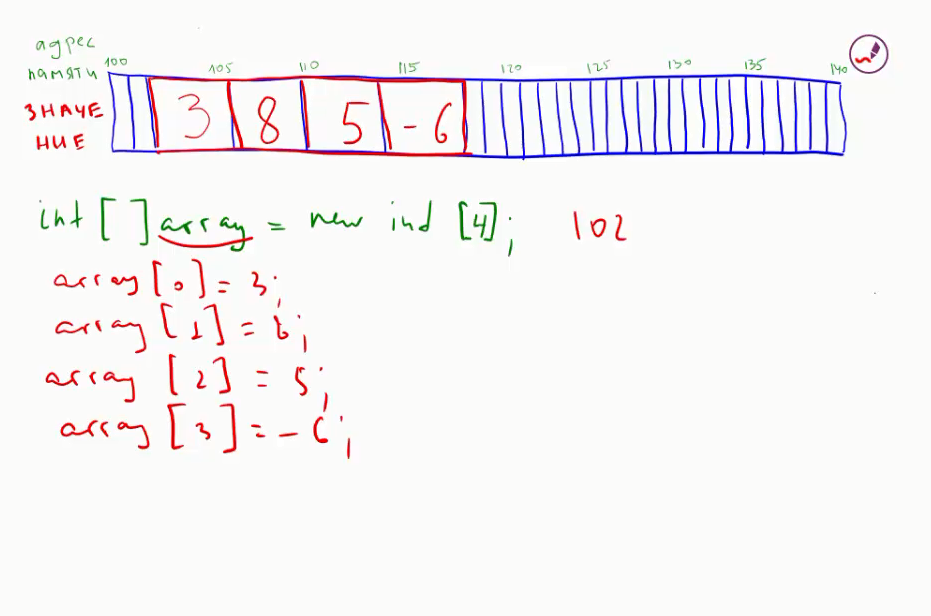 адрес
памяти
100 105 110 115 120 125 130 135 140
ЗНАЧЕ
НИЕ
3 8 5 -6
int [ ] array = new ind [4]; 102
array [0] = 3;
array [1] = 6;
array [2] = 5;
array [3] = -6;